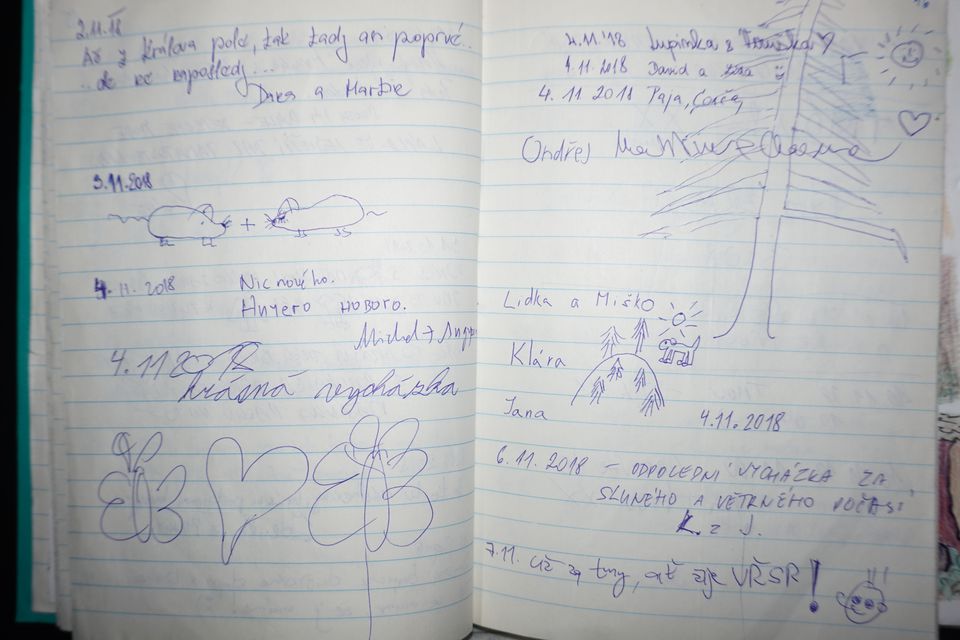 2.11.18
Až z Králova pole, tak tady asi poprvé..
..ale ne naposledy...
a Martin
3.11.2018
+
4.11.2018 Nic nového.
Ничего нового.
Michal +
4.11.2018
krásná vycházka
4.11.'18 Lupínka z
4.11.2018 David a
4.11.2011 Pája,
Ondřej
Lidka a Miško
Klára
Jana
4.11.2018
6.11.2018 - ODPOLEDNÍ VYCHÁZKA ZA
SLUNÉHO A VĚTRNÉHO POČASÍ
K. z J.
7.11. už za tmy, ať žije VŘSR!